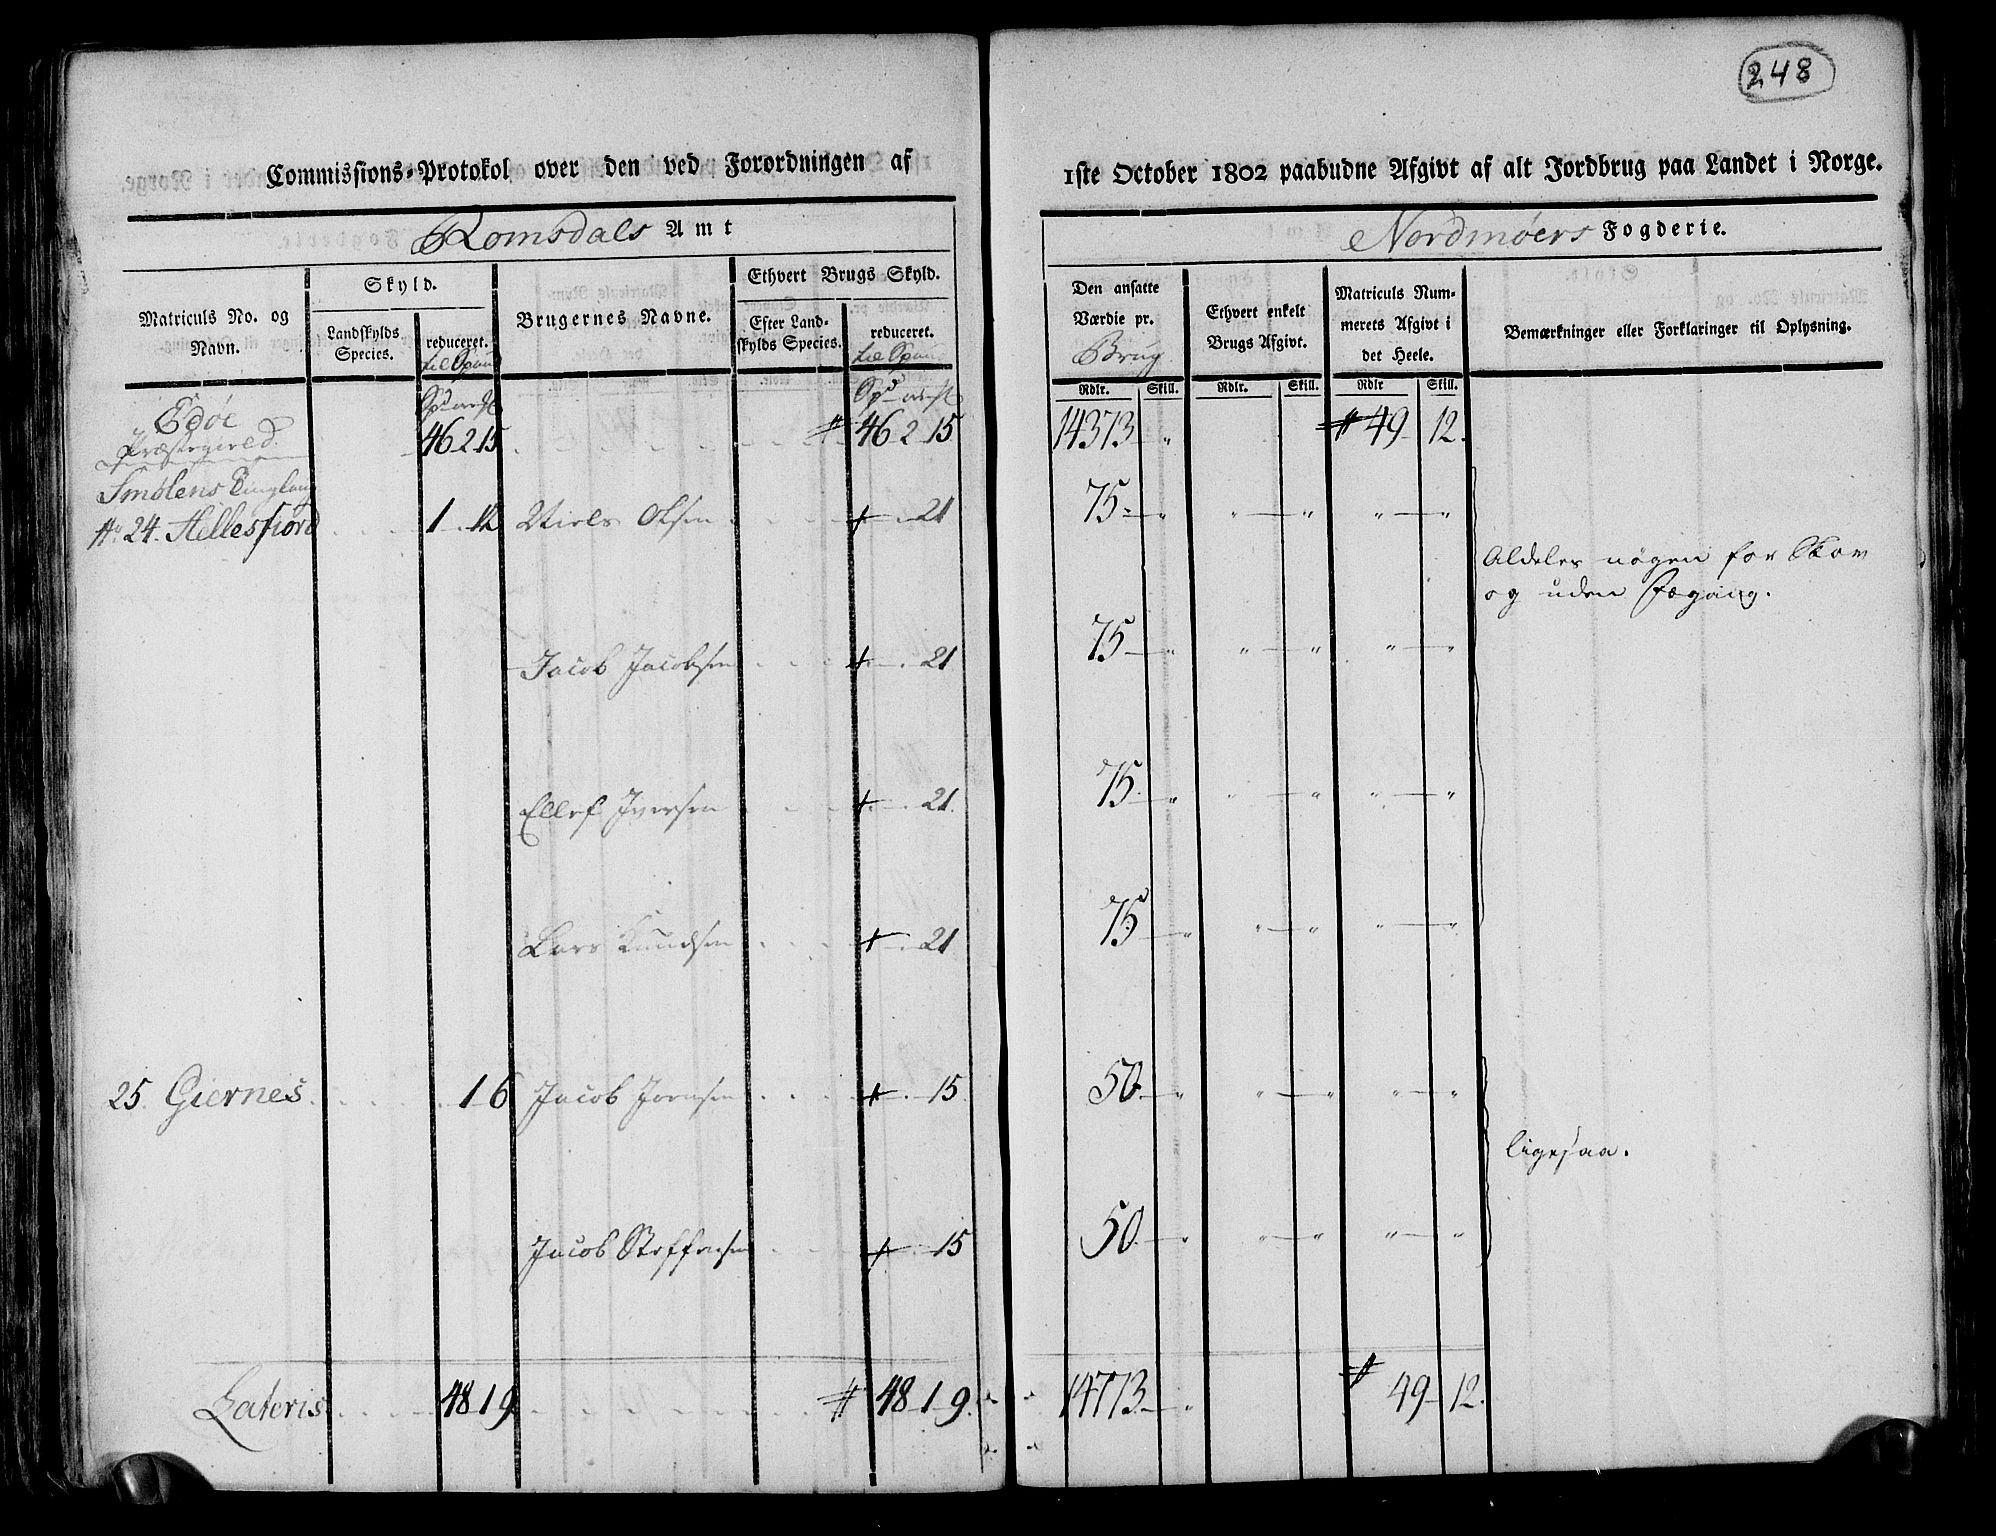 248
Commissions-Protokol over den ved Forordningen af 1ste October 1802 paabudne Afgivt af alt Jordbrug paa Landet i Norge.
Romsdals Amt
Nordmøers Fogderie.
Matriculs No. og Navn.
Skyld.
Landskylds Species.
reduceret. til Spand
Brugernes Navne.
Ethvert Brugs Skyld.
Efter Landskylds Species.
reduceret. til Spand
Den ansatte Værdie pr. Brug
Ethvert enkelt Brugs Afgivt.
Matriculs Nummerets Afgivt i det Heele.
Bemærkninger eller Forklaringer til Oplysning.
Rdlr. Skill. Rdlr. Skill. Rdlr Skill.
Edøe
Præstegield. 46 2 15 46 2 15 14373 „ 49 12.
Smølens Tinglaug
No 24. Hellesfiord 1 . 12 Niels Olsen 21 75 „ „ „ „ „
Aldeles nøgen for Skov
og uden Fægang.
Jacob Jacobsen 21 75 „ „ „ „ „
Ellef Iversen 21. 75 „ „ „ „ „
Lars Knudsen 21 75 „ „ „ „ „
25. Giernes 1 6 Jacob Jörensen 15. 50 „ „ „ „ „
ligesaa.
Jacob Steffensen 15 50 „ „ „ „ „
Lateris 48 1 9 48 1 9. 14773 „ 49 12.